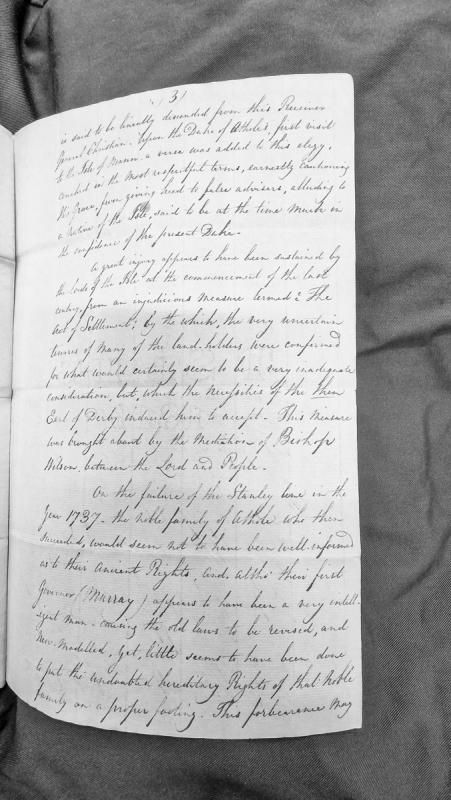 (3)
is said to be lineally descended from this Receiver
General Christian. Upon the Duke of Athole's, first visit
to the Isle of Mann. a verse was added to this elegy,
couched in the most respectful terms, earnestly cautioning
His Grace, from giving heed to false advisers, alluding to
a Native of the Isle, said to be at the time much in
the confidence of the present Duke.
A great injury appears to have been sustained by
the Lords of the Isle at the commencement of the last
century, from an injudicious measure termed "The
Act of Settlement"; by the which, the very uncertain
tenures of many of the land-holders were confirmed
for what would certainly seem to be a very inadequate
consideration, but, which the necessities of the then
Earl of Derby induced him to accept. This measure
was brought about by the Mediation of Bishop
Wilson, between the Lord and People.
On the failure of the Stanley line in the
Year 1737. the noble family of Athole who then
succeeded, would seem not to have been well-informed
as to their Ancient Rights, and, altho' their first
Governor (Murray) appears to have been a very intell-
igent man - causing the old laws to be revised, and
New-modelled, yet, little seems to have been done
to put the undoubted hereditary Rights of that Noble
family on a proper footing. This forbearance may